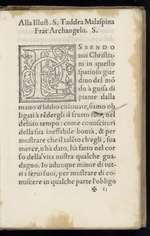 Alla Illust. S. Taddea Malaspina
Frat'Archangelo. S.
ESSENDO
noi Christia-
ni in questo
spatioso giar
dino del mō
do à guisa di
piante dalla
mano d'Iddio collocate, siamo ob
ligati à rēdergli il frutto suo, nel
debito tempo: come conoscitori
della sua ineffabile bontà, & per
mostrare che il talēto ch'egli, sua
merce, n'ha dato, hà fatto nel cor
so della vita nostra qualche gua-
dagno. Io adunque minor di tut-
ti i servi suoi, per mostrare di co-
noscere in qualche parte l'obligo